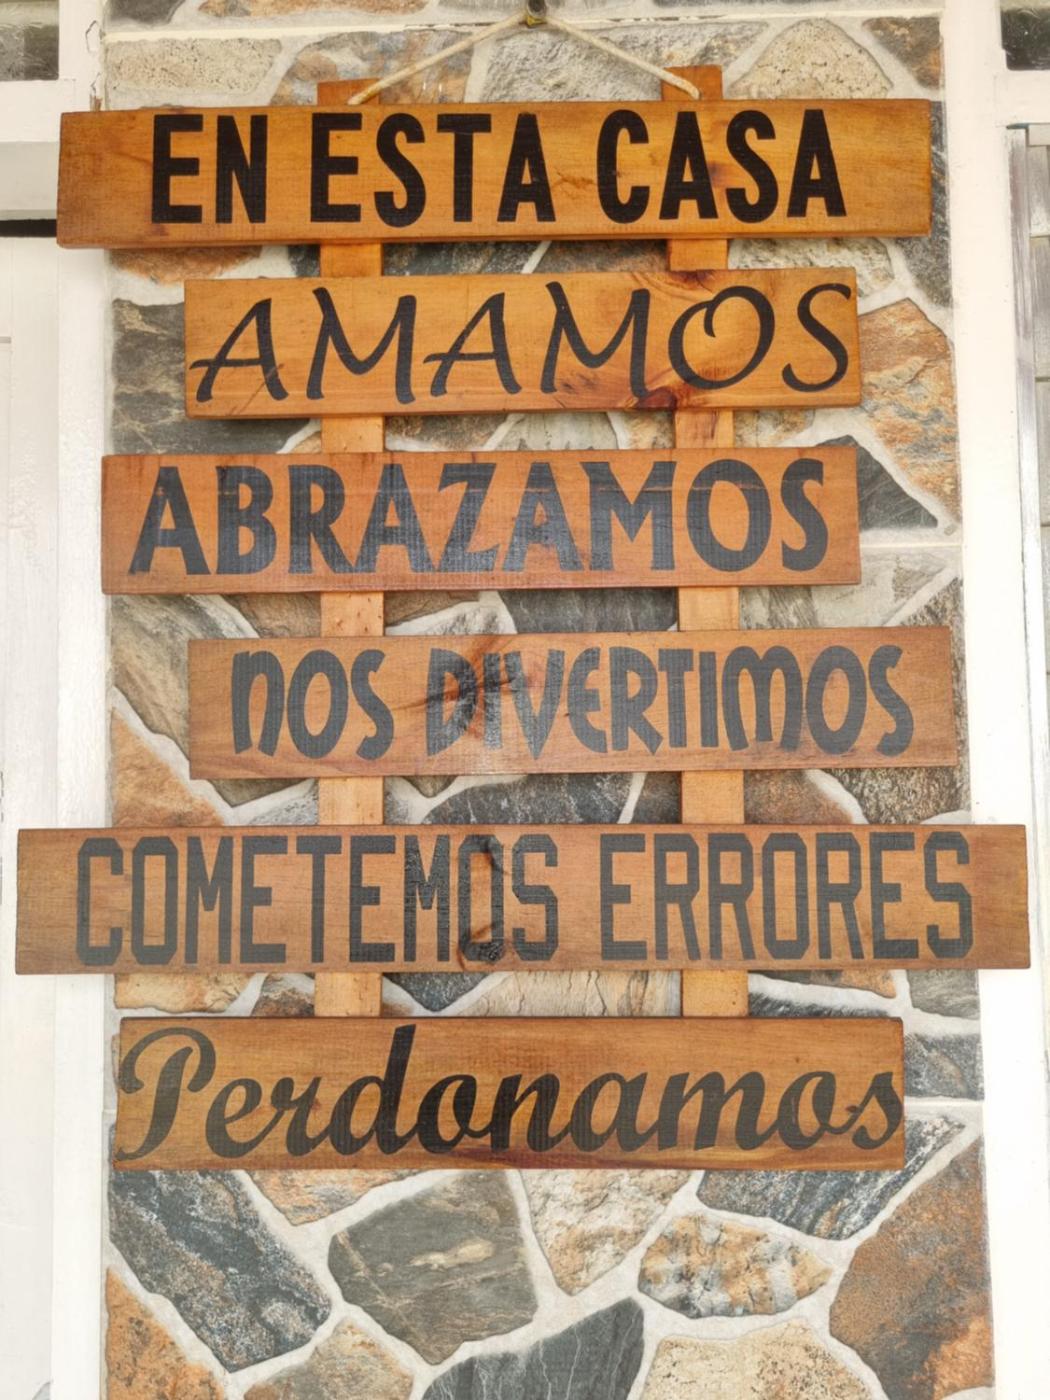 EN ESTA CASA
AMAMOS
ABRAZAMOS
NOS DIVERTIMOS
COMETEMOS ERRORES
Perdonamos